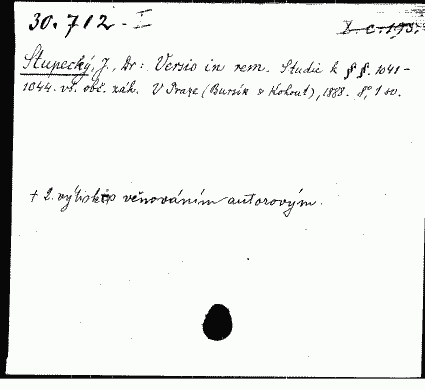 30.712 - I
I c. 195.
Stupecký, J., Dr: Versio in rem. Studie k §§. 1041-
1044. vš. obč. zák. V Praze (Bursík & Kohout), 1888. 8°, 1 sv.
+ 2. výtisk s věnováním autorovým.